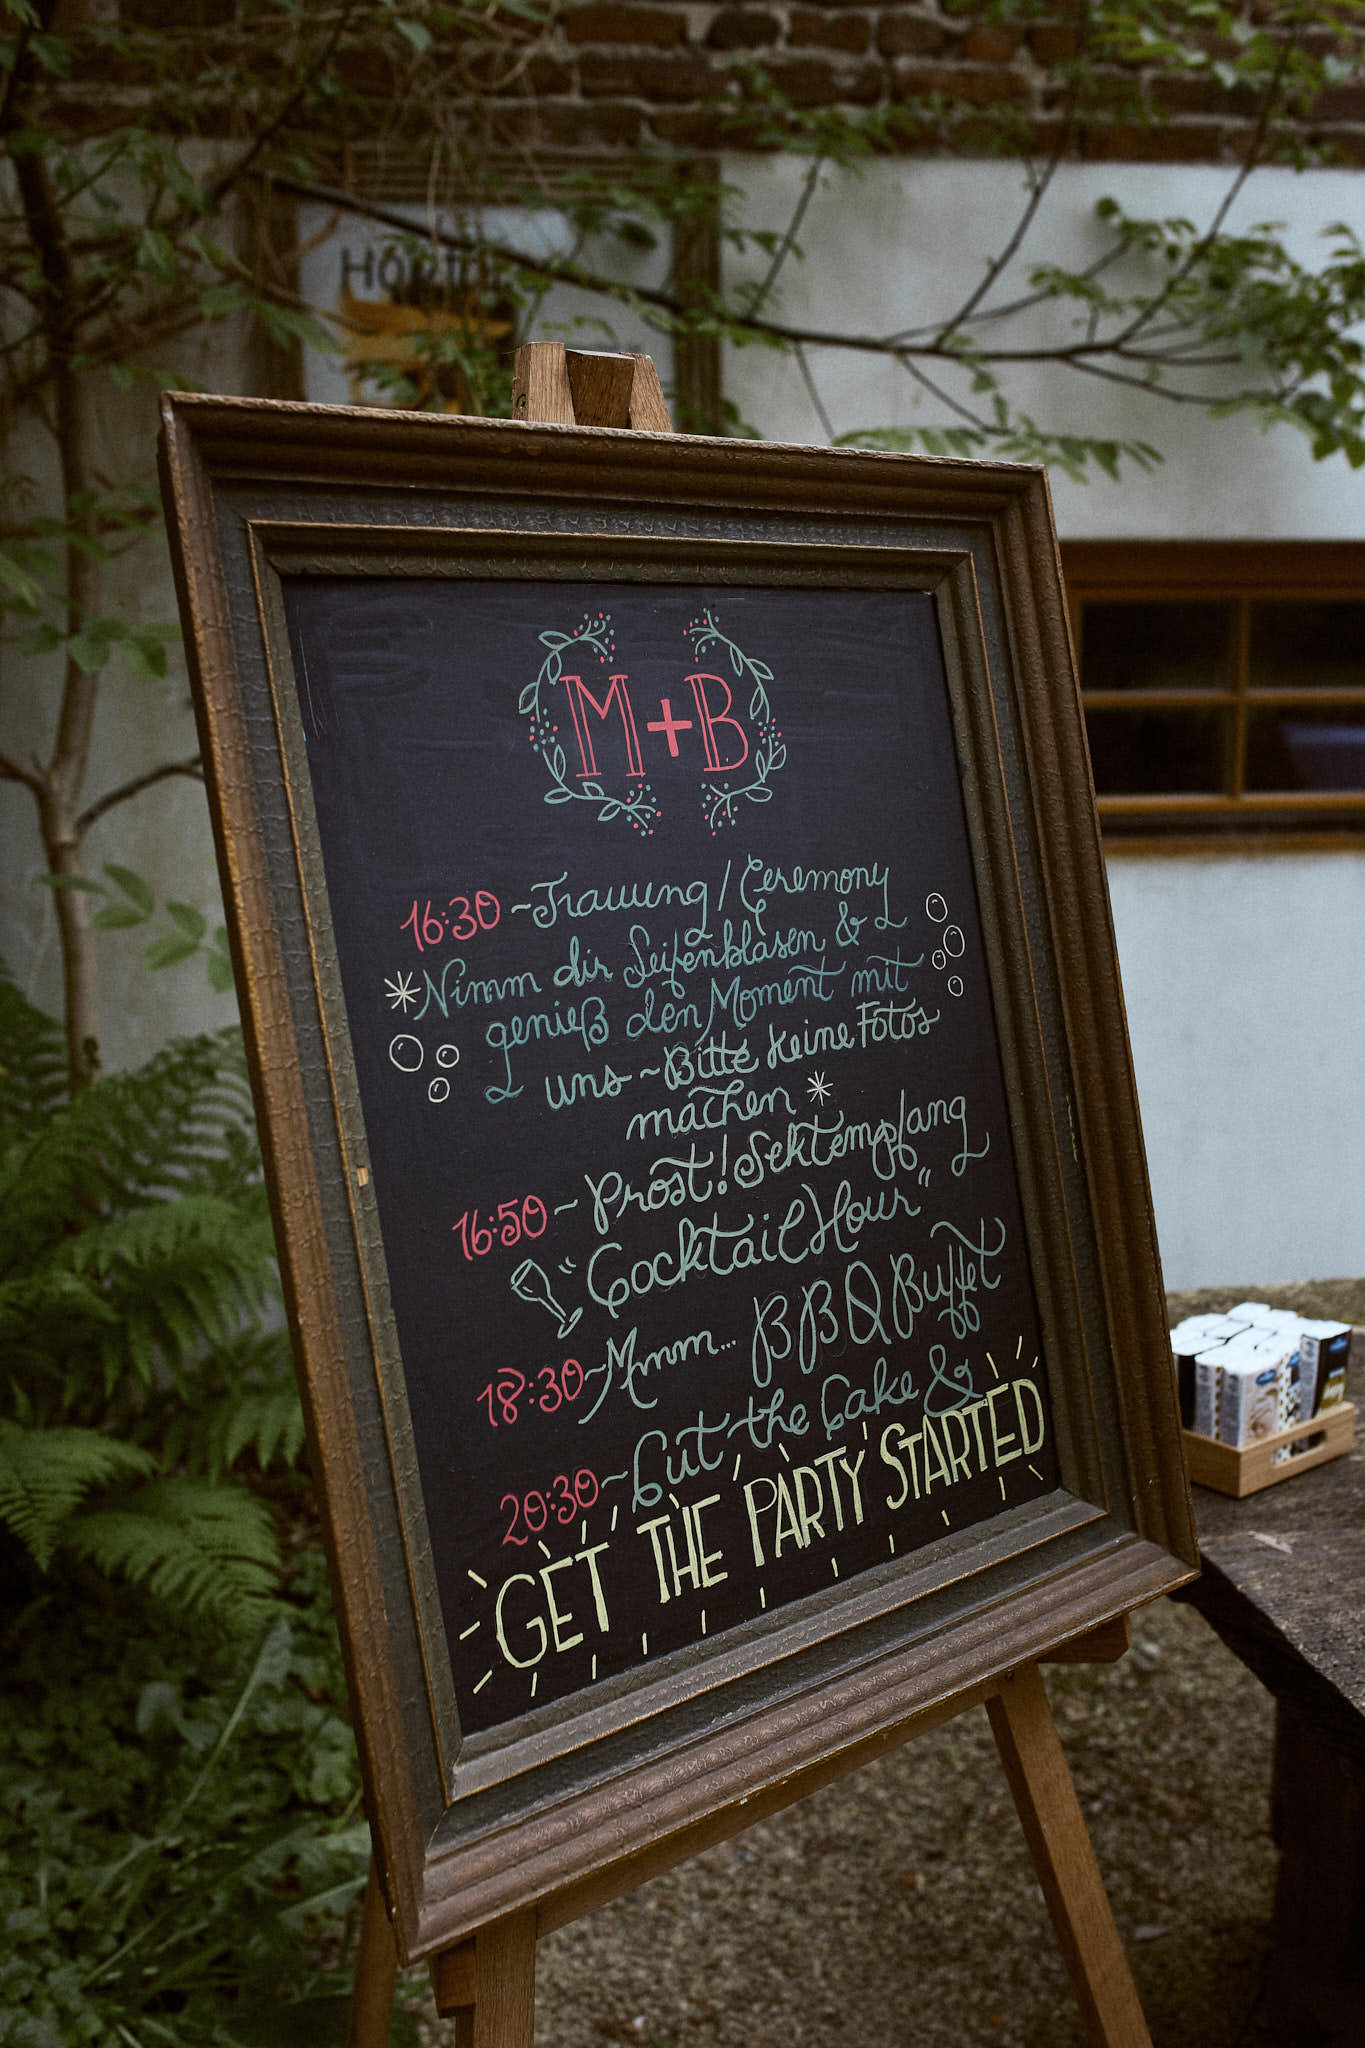 M+B
16:30 ~ Trauung / Ceremony
*Nimm dir Seifenblasen &
genieß den Moment mit
uns ~ Bitte keine Fotos
machen *
16:50 ~ Prost! Sektempfang
"Cocktail Hour"
18:30 ~ Mmm... BBQ Buffet
20:30 ~ Cut the Cake &
GET THE PARTY STARTED